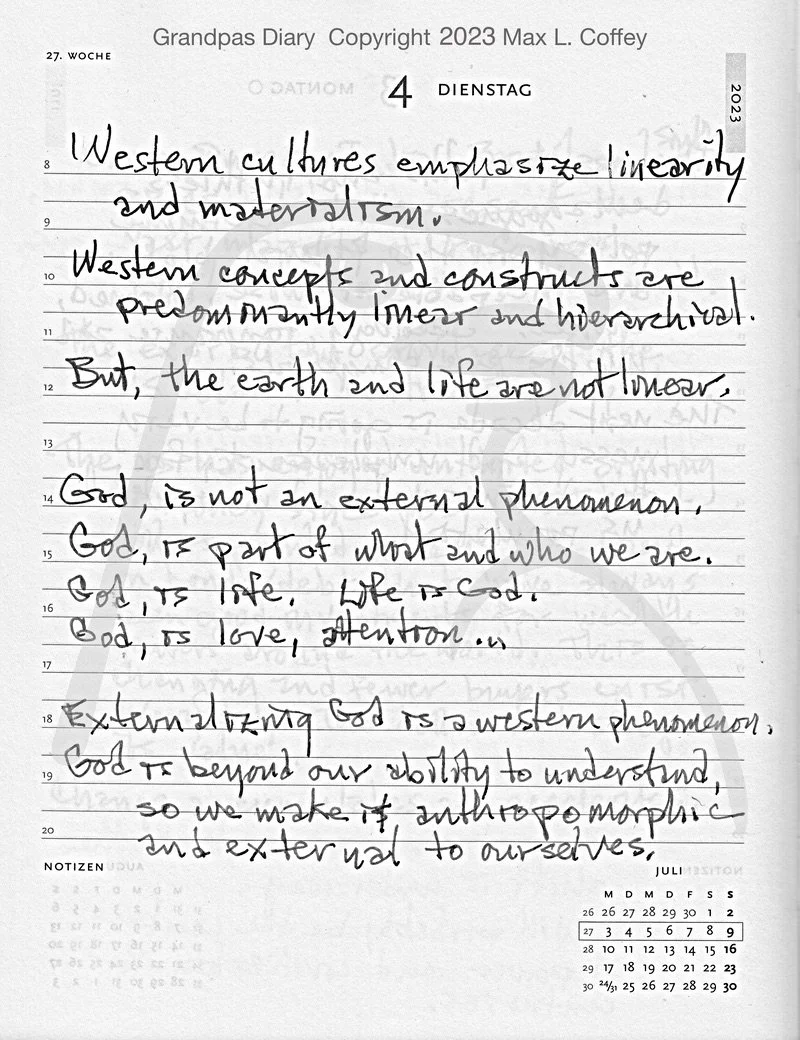 Grandpas Diary Copyright 2023 Max L. Coffey
27. WOCHE
4 DIENSTAG
2023
8 Western cultures emphasize linearity
and materialism.
9
10 Western concepts and constructs are
predominantly linear and hierarchical.
11
12 But, the earth and life are not linear.
13
14 God, is not an external phenomenon.
15 God, is part of what and who we are.
God, is life. Life is God.
16
God, is love, attention...
17
18 Externalizing God is a western phenomenon.
19 God is beyond our ability to understand,
so we make it anthropomorphic
20
and external to ourselves.
NOTIZEN
JULI
M D M D F S S
26 26 27 28 29 30 1 2
27 3 4 5 6 7 8 9
28 10 11 12 13 14 15 16
29 17 18 19 20 21 22 23
30 24/31 25 26 27 28 29 30